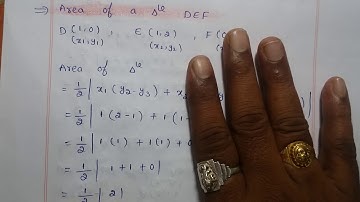 ⇒ Area of a Δle DEF
D(1,0) , E(1,2) , F(0
(x1,y1) (x2,y2) (x
Area of Δle
= 1/2 | x1(y2-y3) + x
= 1/2 | 1(2-1) + 1(1-
= 1/2 | 1(1) + 1(1) + 0
= 1/2 | 1+1+0|
= 1/2 | 2|